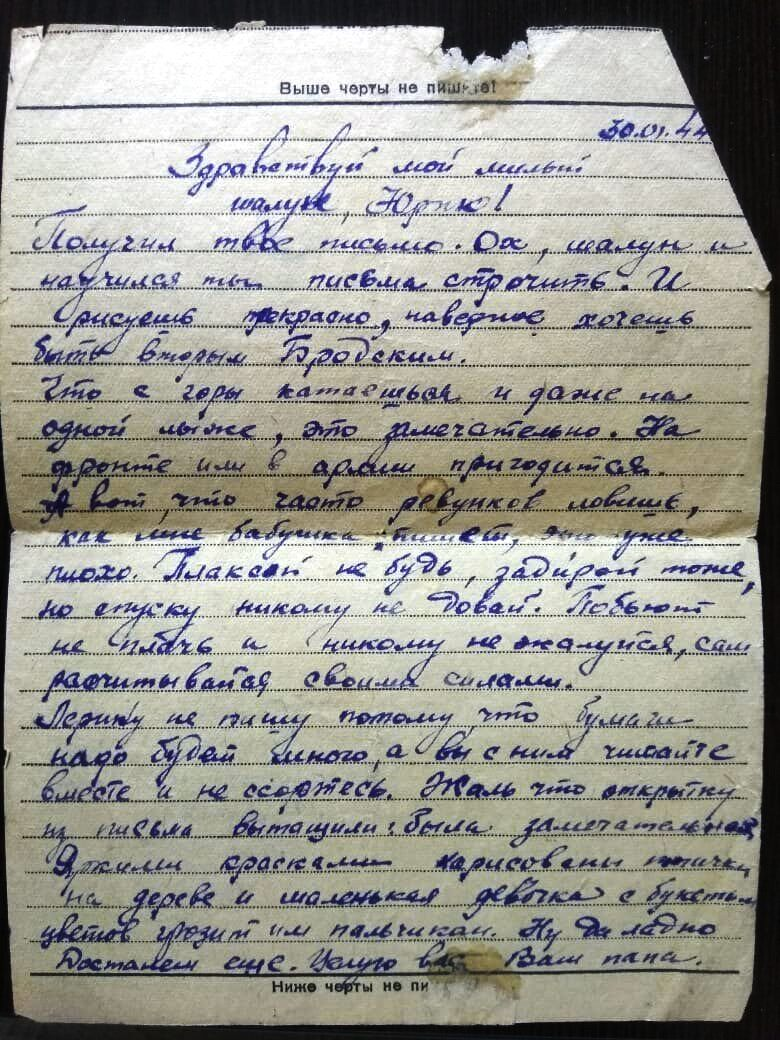 Выше черты не пишите!
30.01.44
Здравствуй мой милый
шалун, Юрик!
Получил твое письмо. Ох, шалун и
научился ты письма строчить. И
рисуешь прекрасно, наверное хочешь
быть вторым Бродским.
Что с горы катаешься и даже на
одной лыже, это замечательно. На
фронте или в армии пригодится.
А вот, что часто ревунков ловишь,
как мне бабушка пишет, это уже
плохо. Плаксой не будь, задирой тоже,
но спуску никому не довай. Побьют
не плачь и никому не жалуйся, сам
расчитывайся своими силами.
Лерику не пишу потому, что бумаги
надо будет много, а вы с ним читайте
вместе и не ссортесь. Жаль что открытку
из письма вытащили: была замечательная,
Яркими красками нарисованы птички
на дереве и маленькая девочка с букетом
цветов грозит им пальчиком. Ну да ладно
Достанем еще. Целую вас Ваш папа.
Ниже черты не пи